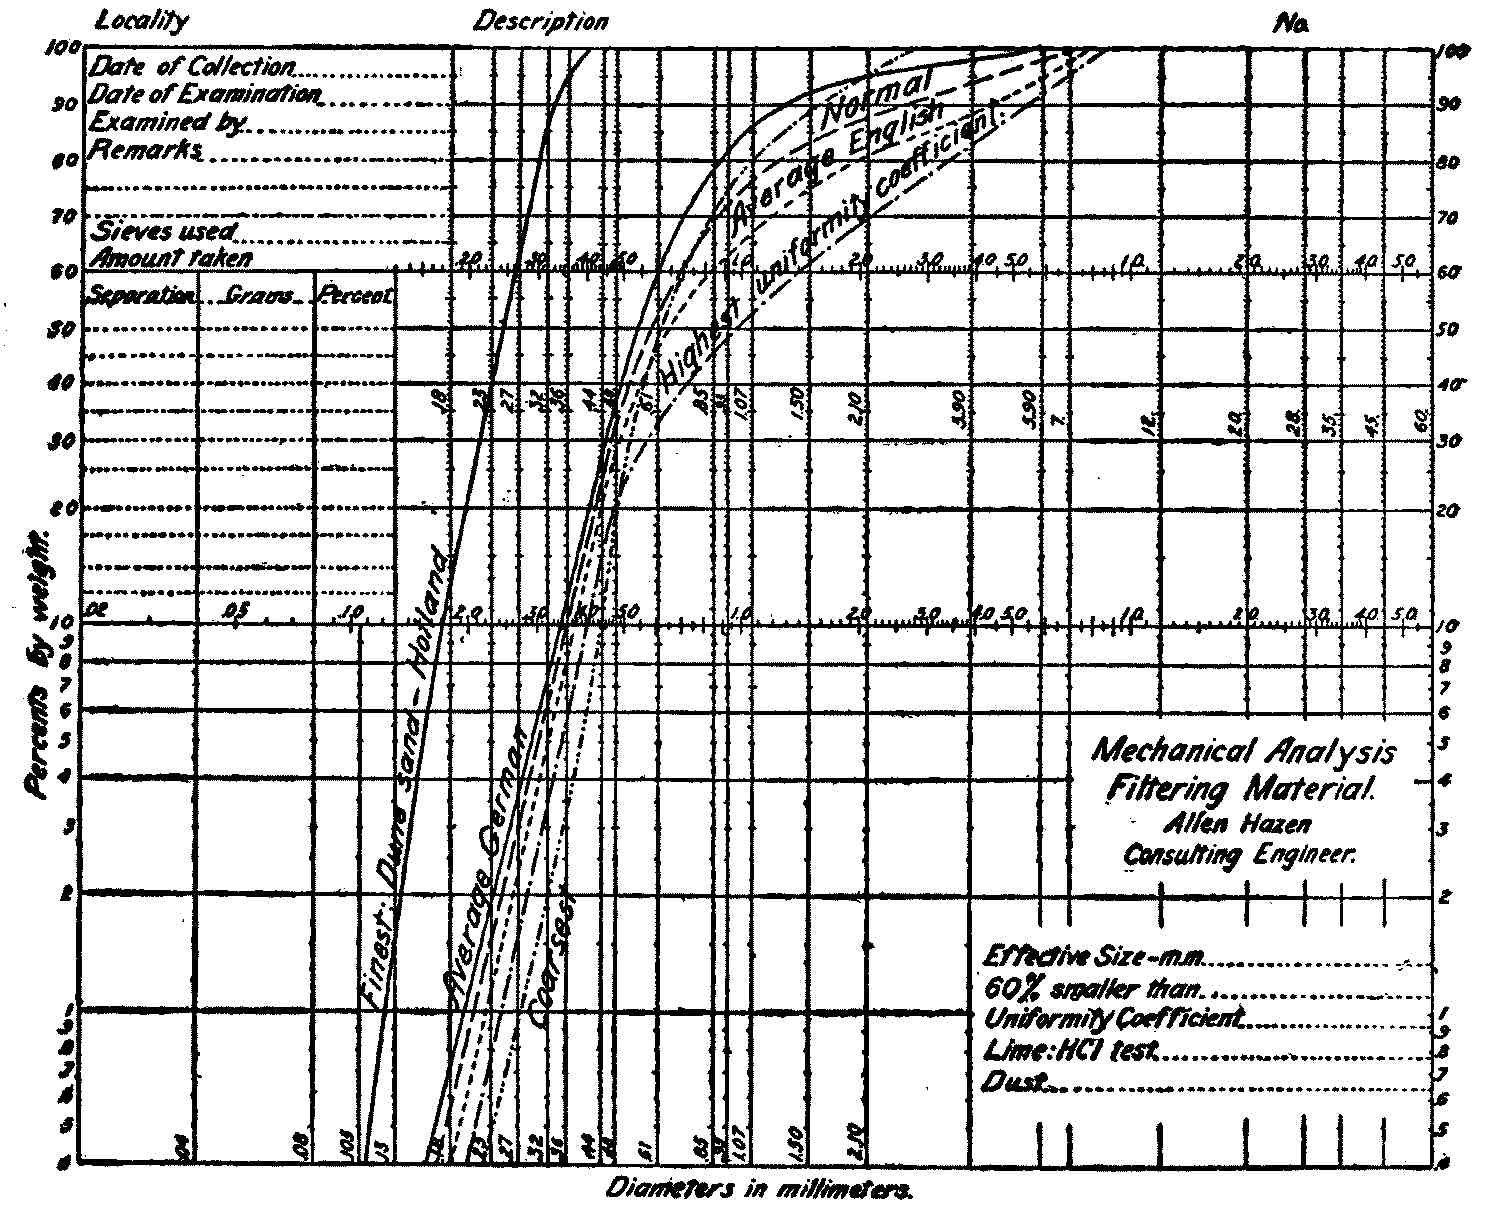 Locality Description No.
Date of Collection
Date of Examination
Examined by
Remarks
Sieves used
Amount taken
Separation Grams Percent
100
90
80
70
60
50
40
30
20
10
9
8
7
6
5
4
3
2
1
Percents by weight.
100
90
80
70
60
50
40
30
20
10
9
8
7
6
5
4
3
2
1
.9
.8
.7
.6
.5
.4
.20 .30 .40 .50 1.0 2.0 3.0 4.0 5.0 10. 20. 30. 40. 50.
.18 .23 .27 .32 .36 .44 .61 .85 1.07 1.50 2.10 3.90 5.90 7. 12. 20. 28. 35. 45. 60.
.02 .05 .10 .20 .30 .40 .50 1.0 2.0 3.0 4.0 5.0 10. 20. 30. 40. 50.
.04 .08 .105 .13 .18 .23 .27 .32 .36 .44 .61 .85 1.07 1.50 2.10
Normal
Average English
Highest uniformity coefficient.
Finest. Dune sand - Holland
Average German
Coarsest
Mechanical Analysis
Filtering Material.
Allen Hazen
Consulting Engineer.
Effective Size-m.m.
60% smaller than
Uniformity Coefficient
Lime: HCl test
Dust
Diameters in millimeters.